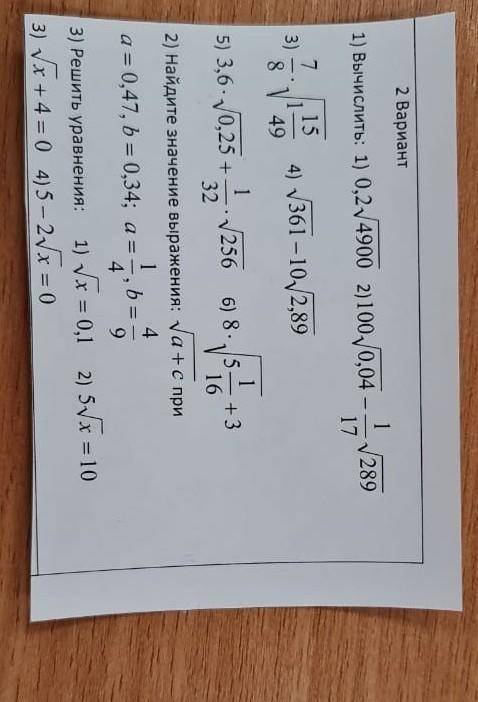 2 Вариант
1) Вычислить: 1) 0,2√4900 2)100√0,04 − 1/17 √289
3) 7/8 · √(1 15/49) 4) √361 − 10√2,89
5) 3,6 · √0,25 + 1/32 · √256 6) 8 · √(5 1/16) + 3
2) Найдите значение выражения: √(a + c) при
a = 0,47, b = 0,34; a = 1/4, b = 4/9
3) Решить уравнения: 1) √x = 0,1 2) 5√x = 10
3) √x + 4 = 0 4) 5 − 2√x = 0